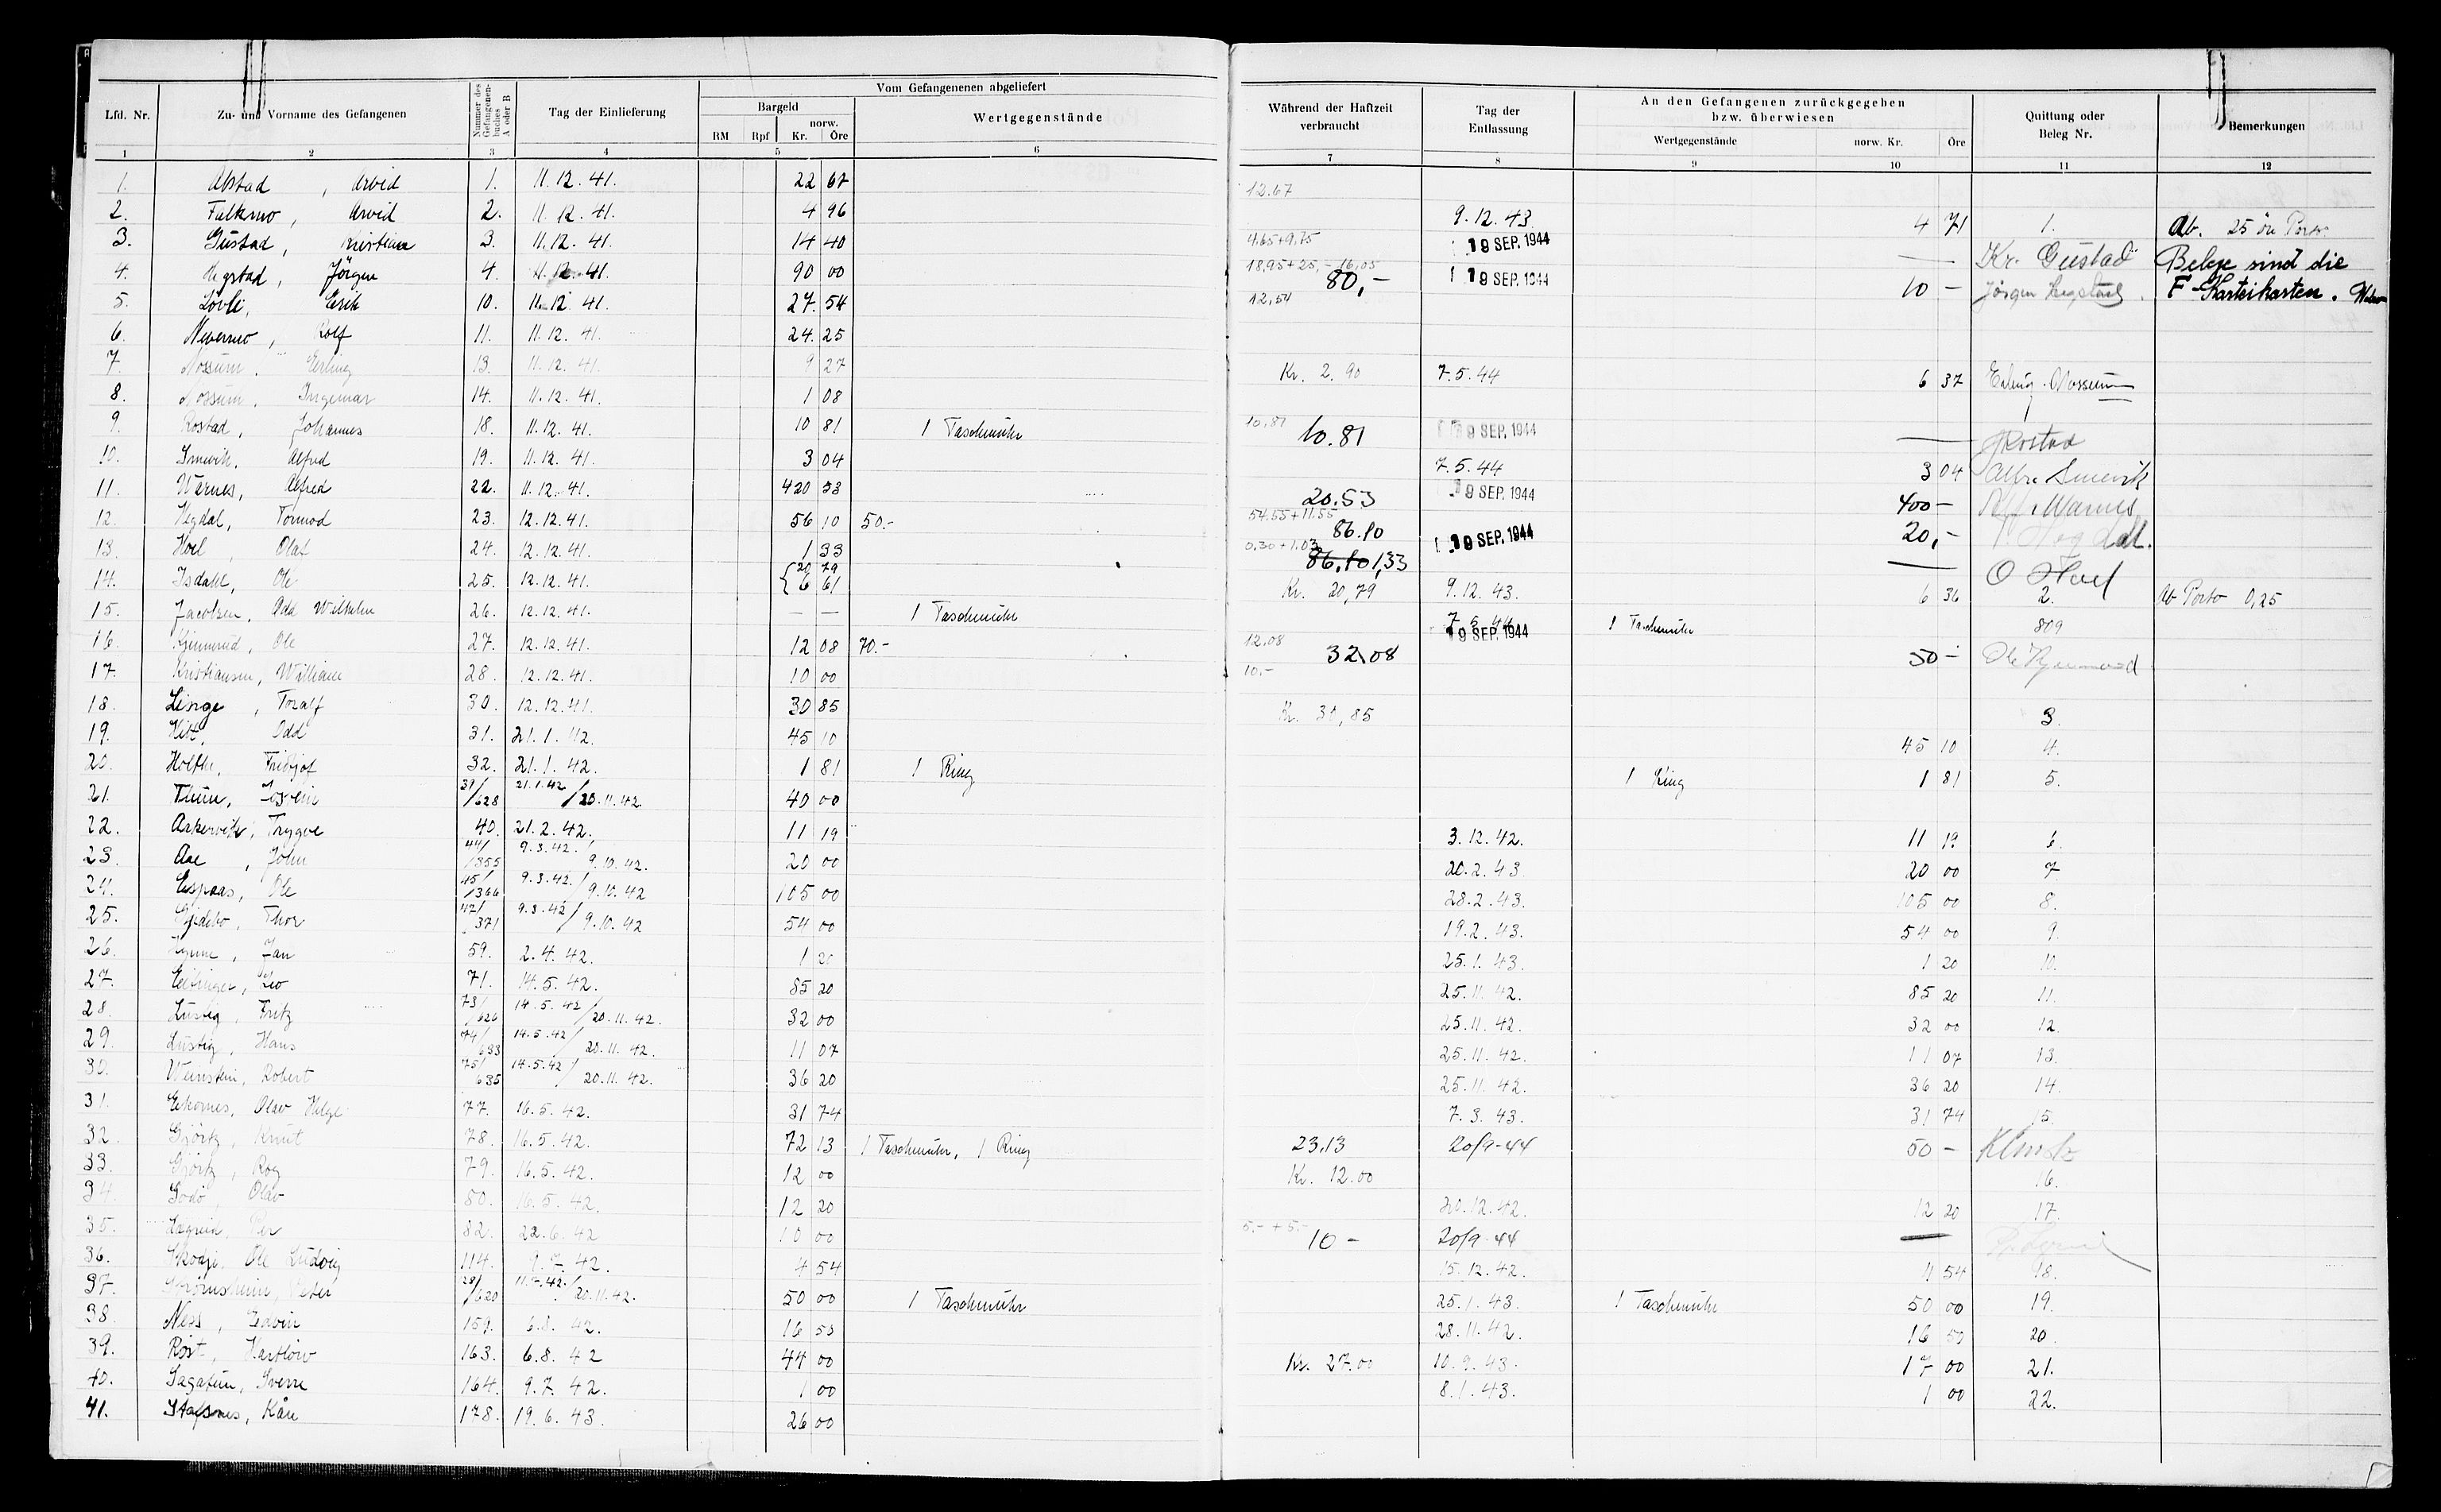 Vom Gefangenenen abgeliefert
Lfd. Nr. Zu- und Vorname des Gefangenen Nummer des Gefangenen-buches A oder B Tag der Einlieferung Bargeld Wertgegenstände
RM Rpf norw. Kr. Öre
1 2 3 4 5 6
1. Alstad, Arvid 1. 11.12.41. 22 67
2. Falkmo, Arvid 2. 11.12.41. 4 96
3. Gustad, Kristian 3. 11.12.41. 14 40
4. Hegstad, Jörgen 4. 11.12.41. 90 00
5. Lövli, Erik 10. 11.12.41. 27.54
6. Nevermo, Rolf 11. 11.12.41. 24.25
7. Nossum, Erling 13. 11.12.41. 9 27
8. Nossum, Ingemar 14. 11.12.41. 1 08
9. Rostad, Johannes 18. 11.12.41. 10 81 1 Taschenuhr
10. Smevik, Alfred 19. 11.12.41. 3 04
11. Wärnes, Alfred 22. 11.12.41. 420 53
12. Hegdal, Tormod 23. 12.12.41. 56 10 50.-
13. Hoel, Olaf 24. 12.12.41. 1 33
14. Isdahl, Ole 25. 12.12.41. { 20 79
6 61
15. Jacobsen, Odd Wilhelm 26. 12.12.41. — — 1 Taschenuhr
16. Ole 27. 12.12.41. 12 08 70.-
17. Kristiansen, William 28. 12.12.41. 10 00
18. Linge, Toralf 30. 12.12.41. 30 85
19. Odd 31. 21.1.42. 45 10
20. Holthe, Fridtjof 32. 21.1.42. 1 81 1 Ring
21. Thun, 39/628 21.1.42/20.11.42. 40 00
22. Askervik, Trygve 40. 21.2.42. 11 19
23. Aae, John 44/355 9.3.42./9.10.42. 20 00
24. Espaas, Ole 45/366 9.3.42./9.10.42 105 00
25. Gjedebo, Thor 47/371 9.3.42/9.10.42 54 00
26. Jan 59. 2.4.42. 1 20
27. Eitinger, Leo 71. 14.5.42. 85 20
28. Lustig, Fritz 73/626 14.5.42/20.11.42. 32 00
29. Lustig, Hans 74/633 14.5.42/20.11.42. 11 07
30. Weinstein, Robert 75/635 14.5.42/20.11.42. 36 20
31. Ekornes, Olav Helge 77. 16.5.42. 31 74
32. Gjörtz, Knut 78. 16.5.42. 72 13 1 Taschenuhr, 1 Ring
33. Gjörtz, Roy 79. 16.5.42. 12 00
34. Godö, Olav 80. 16.5.42. 12 20
35. Per 82. 22.6.42 10 00
36. Skodje, Ole Ludvig 114. 9.7.42. 4 54
37. Strömsheim, Peter /620 /20.11.42. 50 00 1 Taschenuhr
38. Ness, Edvin 159. 6.8.42. 16 50
39. Röst, Hartlöw 163. 6.8.42 44 00
40. Sagafun, Sverre 164. 9.7.42. 1 00
41. Kåre 178. 19.6.43. 26 00
Während der Haftzeit verbraucht Tag der Entlassung An den Gefangenen zurückgegeben bzw. überwiesen Quittung oder Beleg Nr. Bemerkungen
Wertgegenstände norw. Kr. Öre
7 8 9 10 11 12
12.67
9.12.43. 4 71 1. Ab. 25 öre Porto
4.65+9.75 19 SEP. 1944 — Kr. Gustad Belege sind die
18,95+25,-16,05 80,- 19 SEP. 1944 10 - Jörgen Hegstad. F-Karteikarten.
12,54
Kr. 2.90 7.5.44 6 37 Erling Nossum
10,81 10.81 19 SEP. 1944 — J Rostad
7.5.44 3 04 Alfr. Smevik
20.53 19 SEP. 1944 400 -
54.55+11.55 86.10 19 SEP. 1944 20,-
0.30+1.03 86,10 1,33 — O Hoel
Kr. 20,79 9.12.43. 6 36 2. Ab Porto 0,25
7.5.44 1 Taschenuhr 809
12,08 32.08 19 SEP. 1944 50 -
10.-
Kr. 30,85 3.
45 10 4.
1 Ring 1 81 5.
3.12.42. 11 19 6.
20.2.43 20 00 7
28.2.43. 105 00 8.
19.2.43. 54 00 9.
25.1.43. 1 20 10.
25.11.42. 85 20 11.
25.11.42. 32 00 12.
25.11.42. 11 07 13.
25.11.42. 36 20 14.
7.3.43. 31 74 15.
23,13 20/9-44 50 -
Kr. 12.00 16.
30.12.42. 12 20 17.
5.- + 5.- 10 - 20/9-44 —
15.12.42. 4 54 18.
25.1.43. 1 Taschenuhr 50 00 19.
28.11.42. 16 50 20.
Kr. 27.00 10.9.43. 17 00 21.
8.1.43. 1 00 22.